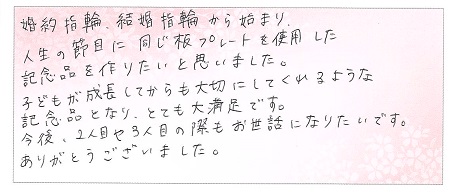 婚約指輪、結婚指輪から始まり、
人生の節目に同じ板プレートを使用した
記念品を作りたいと思いました。
子どもが成長してからも大切にしてくれるような
記念品となり、とても大満足です。
今後、2人目や3人目の際もお世話になりたいです。
ありがとうございました。